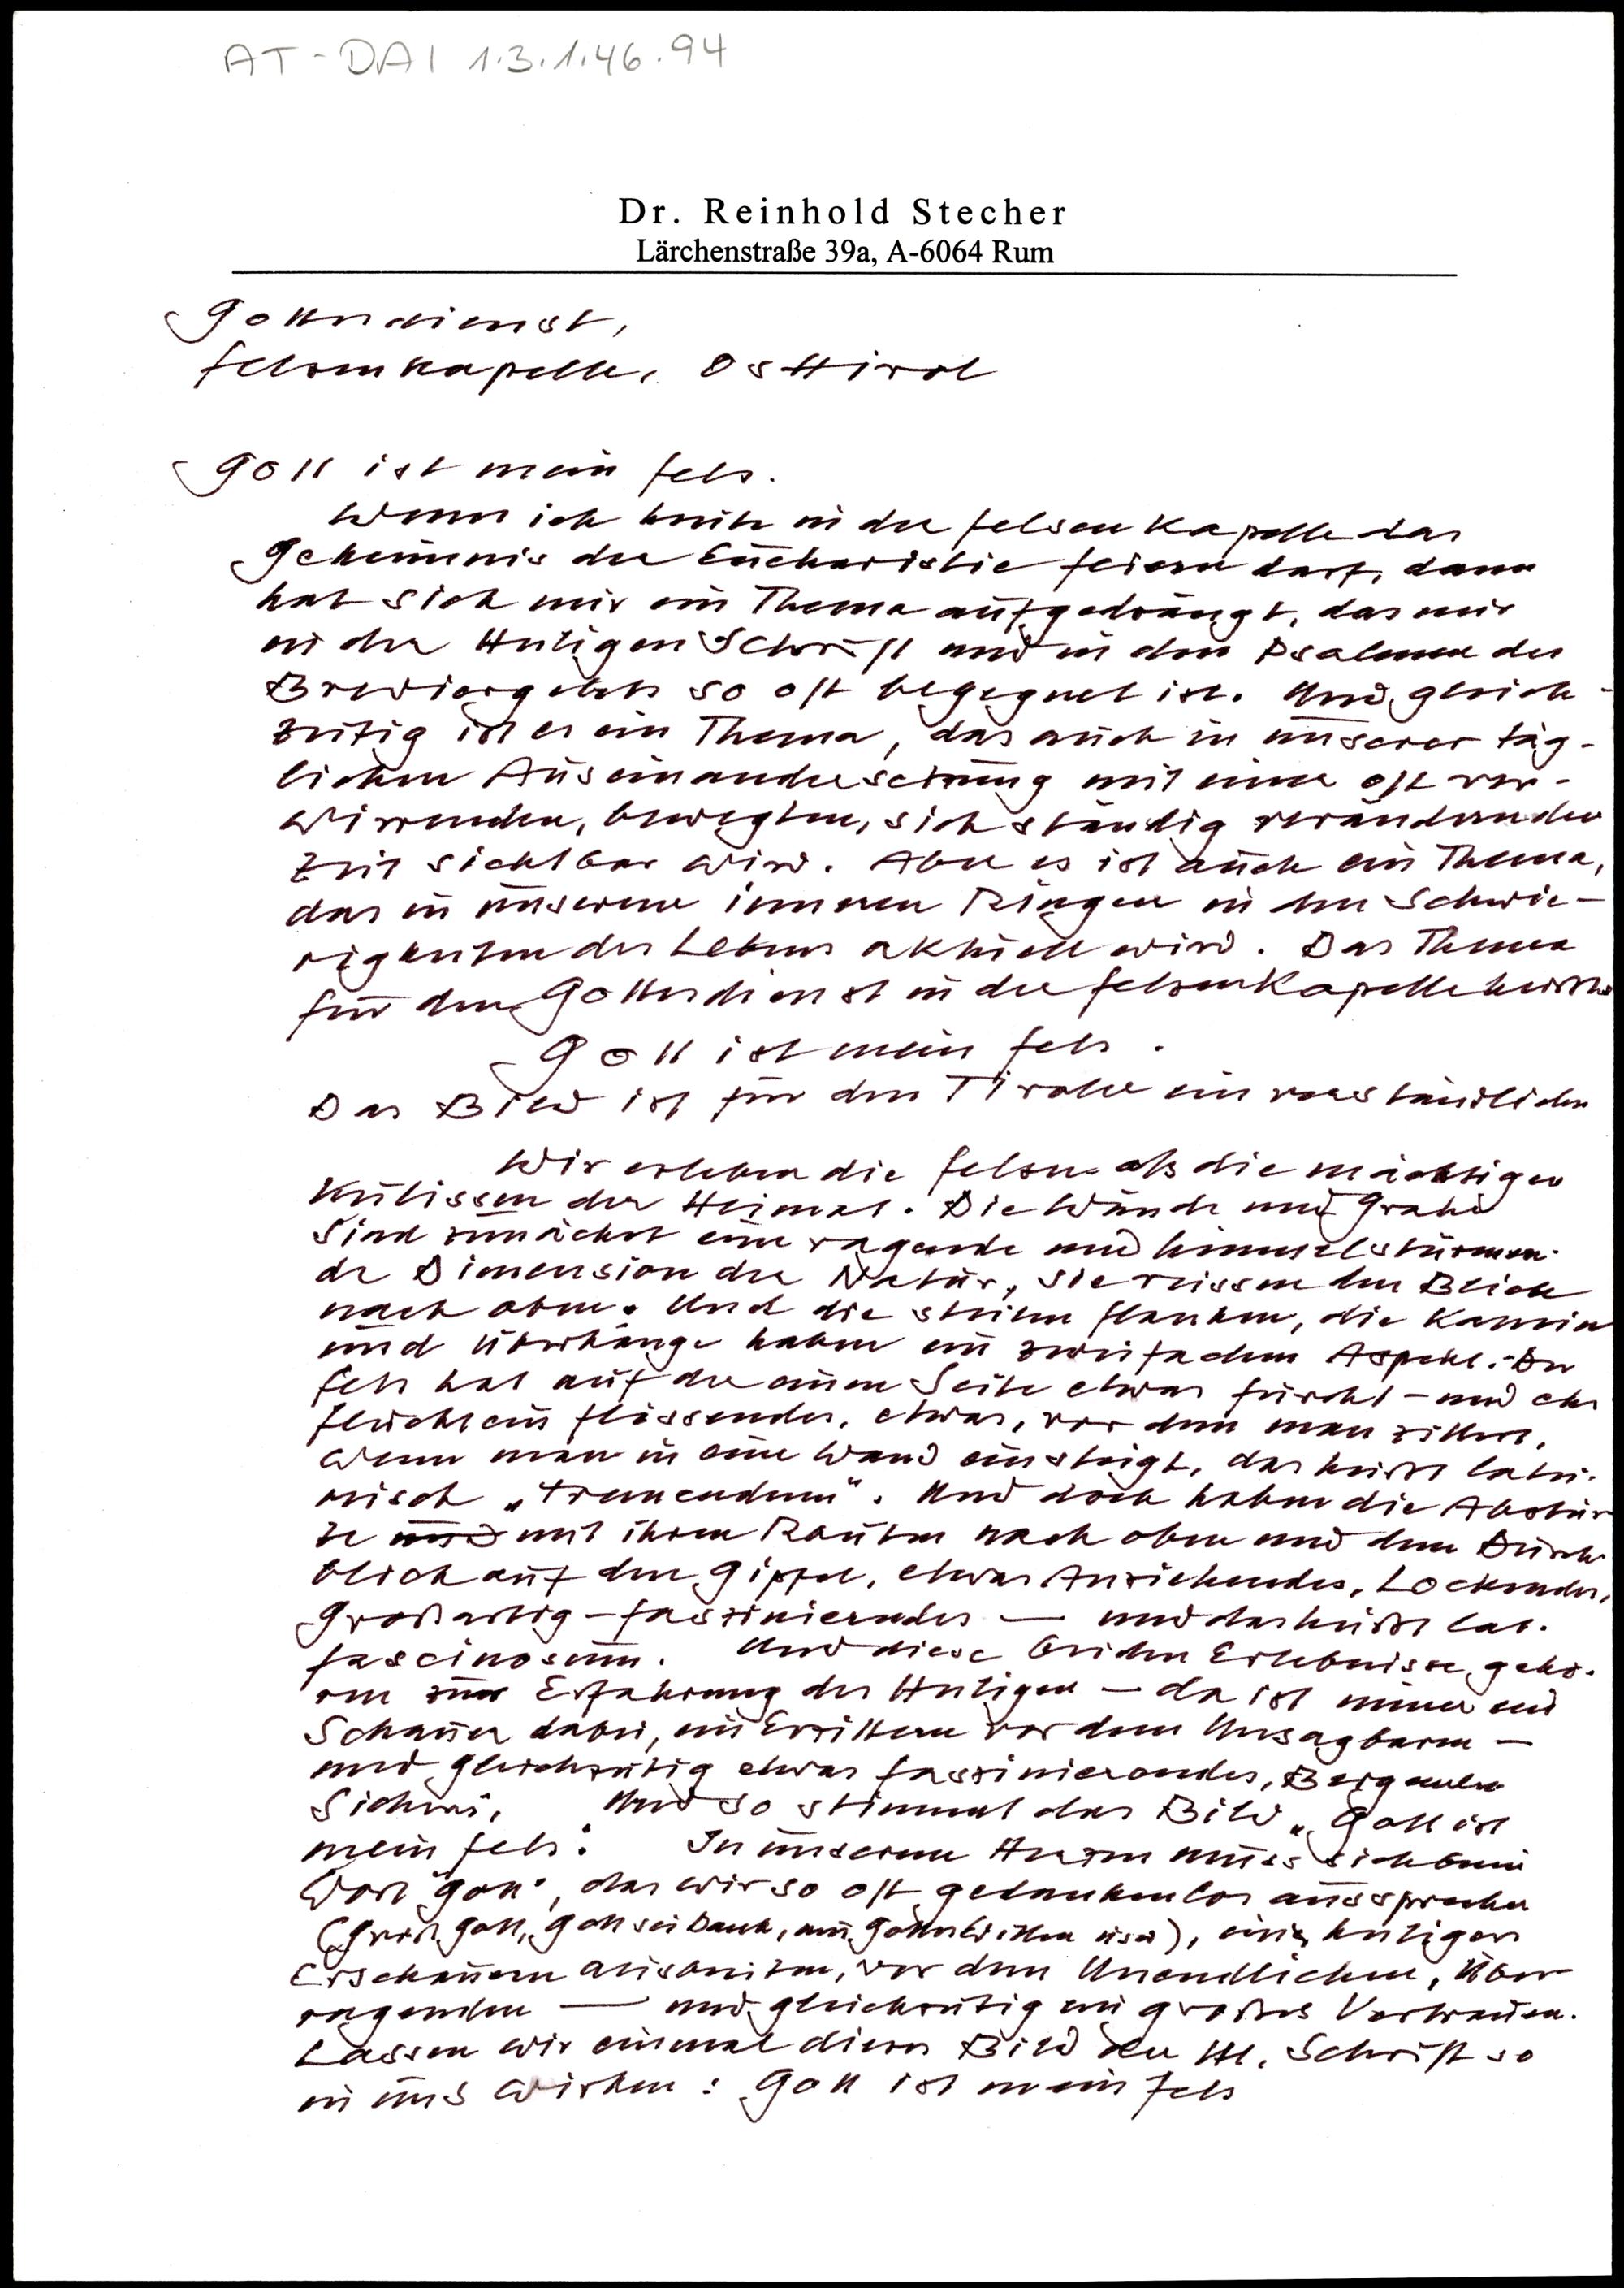 AT-DAI 1.3.1.46.94
Dr. Reinhold Stecher
Lärchenstraße 39a, A-6064 Rum
Gottesdienst,
Felsenkapelle, Osttirol
Gott ist mein Fels.
Wenn ich heute in der Felsenkapelle das
Geheimnis der Eucharistie feiern darf, dann
hat sich mir ein Thema aufgedrängt, das mir
in der Heiligen Schrift und in den Psalmen des
Breviergebets so oft begegnet ist. Und gleich-
zeitig ist es ein Thema, das auch in unserer täg-
lichen Auseinandersetzung mit einer oft ver-
wirrenden, bewegten, sich ständig verändernden
Zeit sichtbar wird. Aber es ist auch ein Thema,
das in unserem inneren Ringen in den Schwie-
rigkeiten des Lebens aktuell wird. Das Thema
für den Gottesdienst in der Felsenkapelle heißt
Gott ist mein Fels.
Das Bild ist für den Tiroler ein verständliches
Wir erleben die Felsen als die mächtigen
Kulissen der Heimat. Die Wände und Grate
sind zunächst eine ragende und himmelstürmen-
de Dimension der Natur, sie reissen den Blick
nach oben. Und die steilen Flanken, die Kamine
und Überhänge haben einen zweifachen Aspekt. Der
Fels hat auf der einen Seite etwas furcht- und ehr
furchteinflössendes, etwas, vor dem man zittert,
wenn man in eine Wand einsteigt, das heißt latei-
nisch „tremendum". Und doch haben die Abstür
ze und mit ihren Routen nach oben und dem Durch
blick auf den Gipfel, etwas Anziehendes, Lockendes,
Großartig-faszinierendes — und das heißt lat.
fascinosum. Und diese beiden Erlebnisse gehö-
ren zur Erfahrung des Heiligen — da ist immer ein
Schauer dabei, ein Erzittern vor dem Unsagbaren —
und gleichzeitig etwas faszinierendes,
Und so stimmt das Bild „Gott ist
mein Fels." In unserem Herzen muss sich beim
Wort "Gott", das wir so oft gedankenlos aussprechen
(Grüß Gott, Gott sei Dank, um Gottes Willen usw), ein heiliges
Erschauern ausbreiten, vor dem Unendlichen, Über
ragenden — und gleichzeitig ein großes Vertrauen.
Lassen wir einmal dieses Bild der Hl. Schrift so
in uns wirken: Gott ist mein Fels